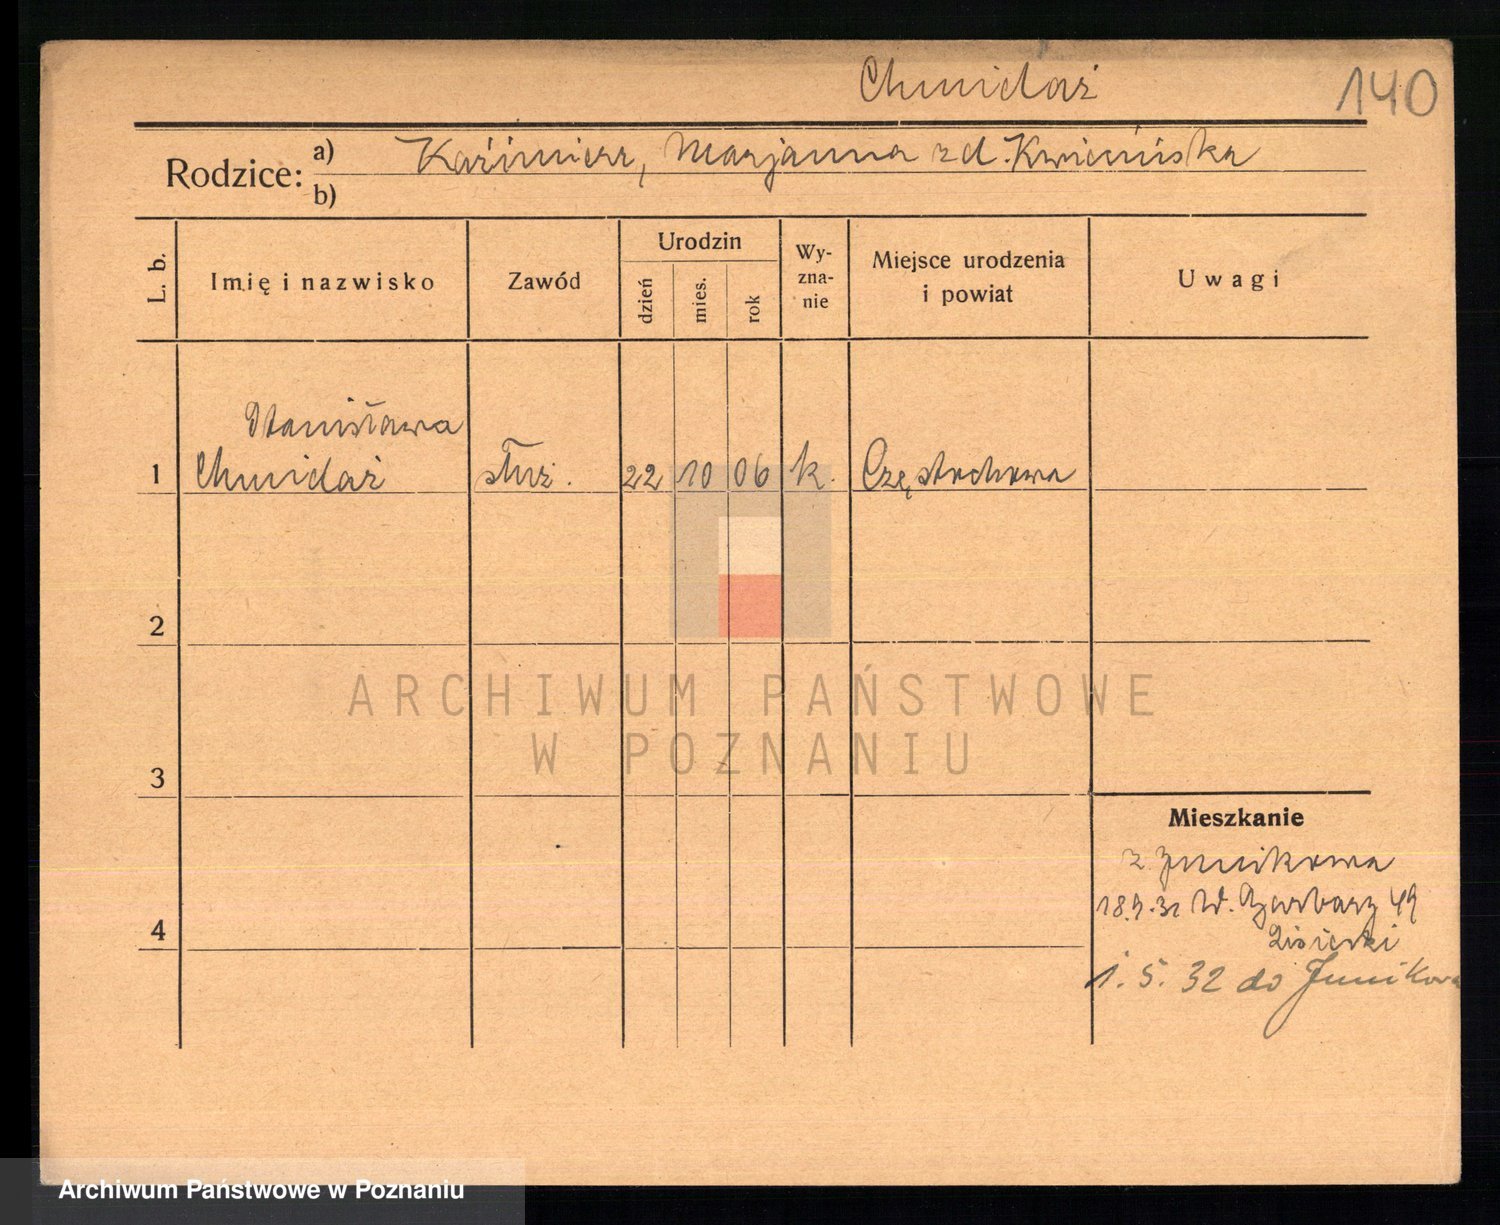 Chmidaż
140
Rodzice:
a) Kaźimierz, Marjanna zd. Kwicińska
b)
L. b.
Imię i nazwisko
Zawód
Urodzin
dzień
mies.
rok
Wy-
zna-
nie
Miejsce urodzenia
i powiat
Uwagi
Stanisława
1 Chmidaż służ. 22 10 06 k. Częstochowa
2
3
4
Mieszkanie
z Junikowa
W. Garbary 49
1. 5. 32 do Junikowa
ARCHIWUM PAŃSTWOWE
W POZNANIU
Archiwum Państwowe w Poznaniu